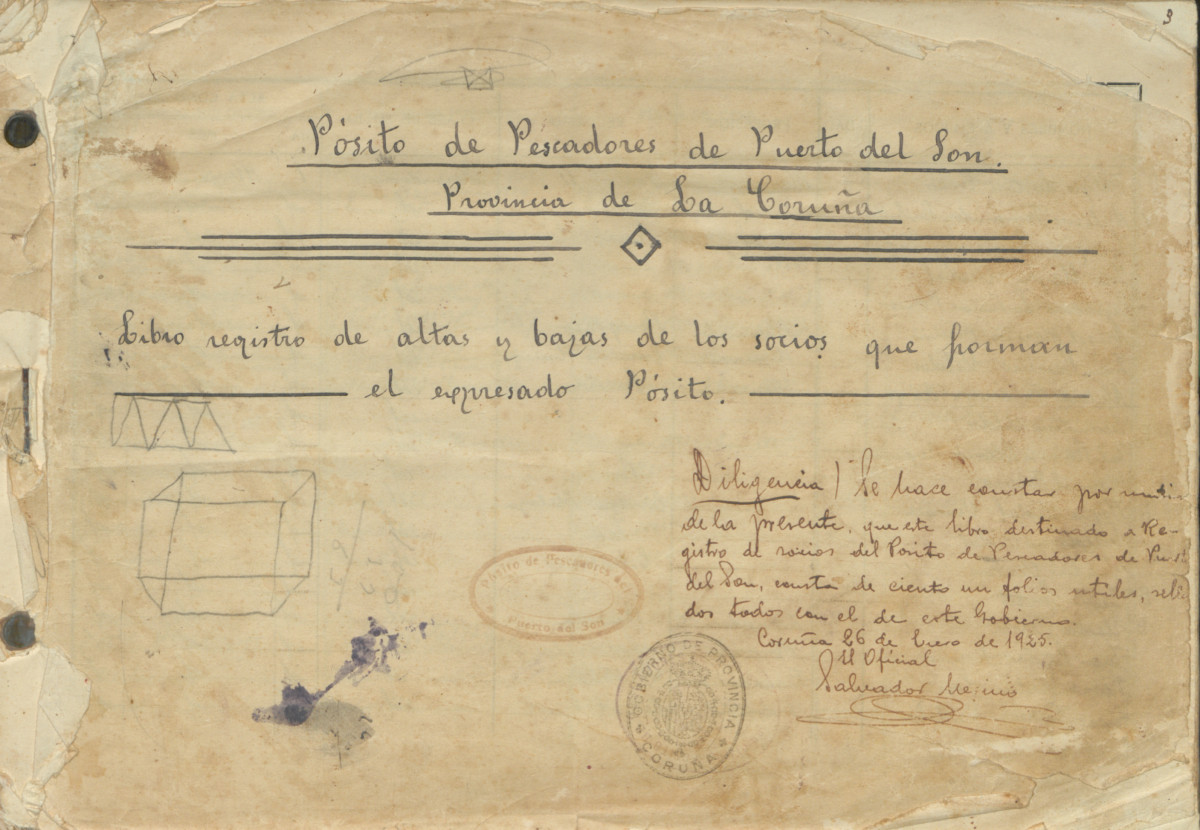 3
Pósito de Pescadores de Puerto del Son.
Provincia de La Coruña
Libro registro de altas y bajas de los socios que forman
el expresado Pósito.
Diligencia / Se hace constar por
de la presente, que este libro destinado a Re-
gistro de socios del Posito de Pescadores de
del Son, consta de ciento un folios utiles, sella
dos todos con el de este Gobierno.
Coruña 26 de Enero de 1925.
El Oficial
Salvador Merino
Pósito de Pescadores del
Puerto del Son
GOBIERNO DE PROVINCIA
CORUÑA